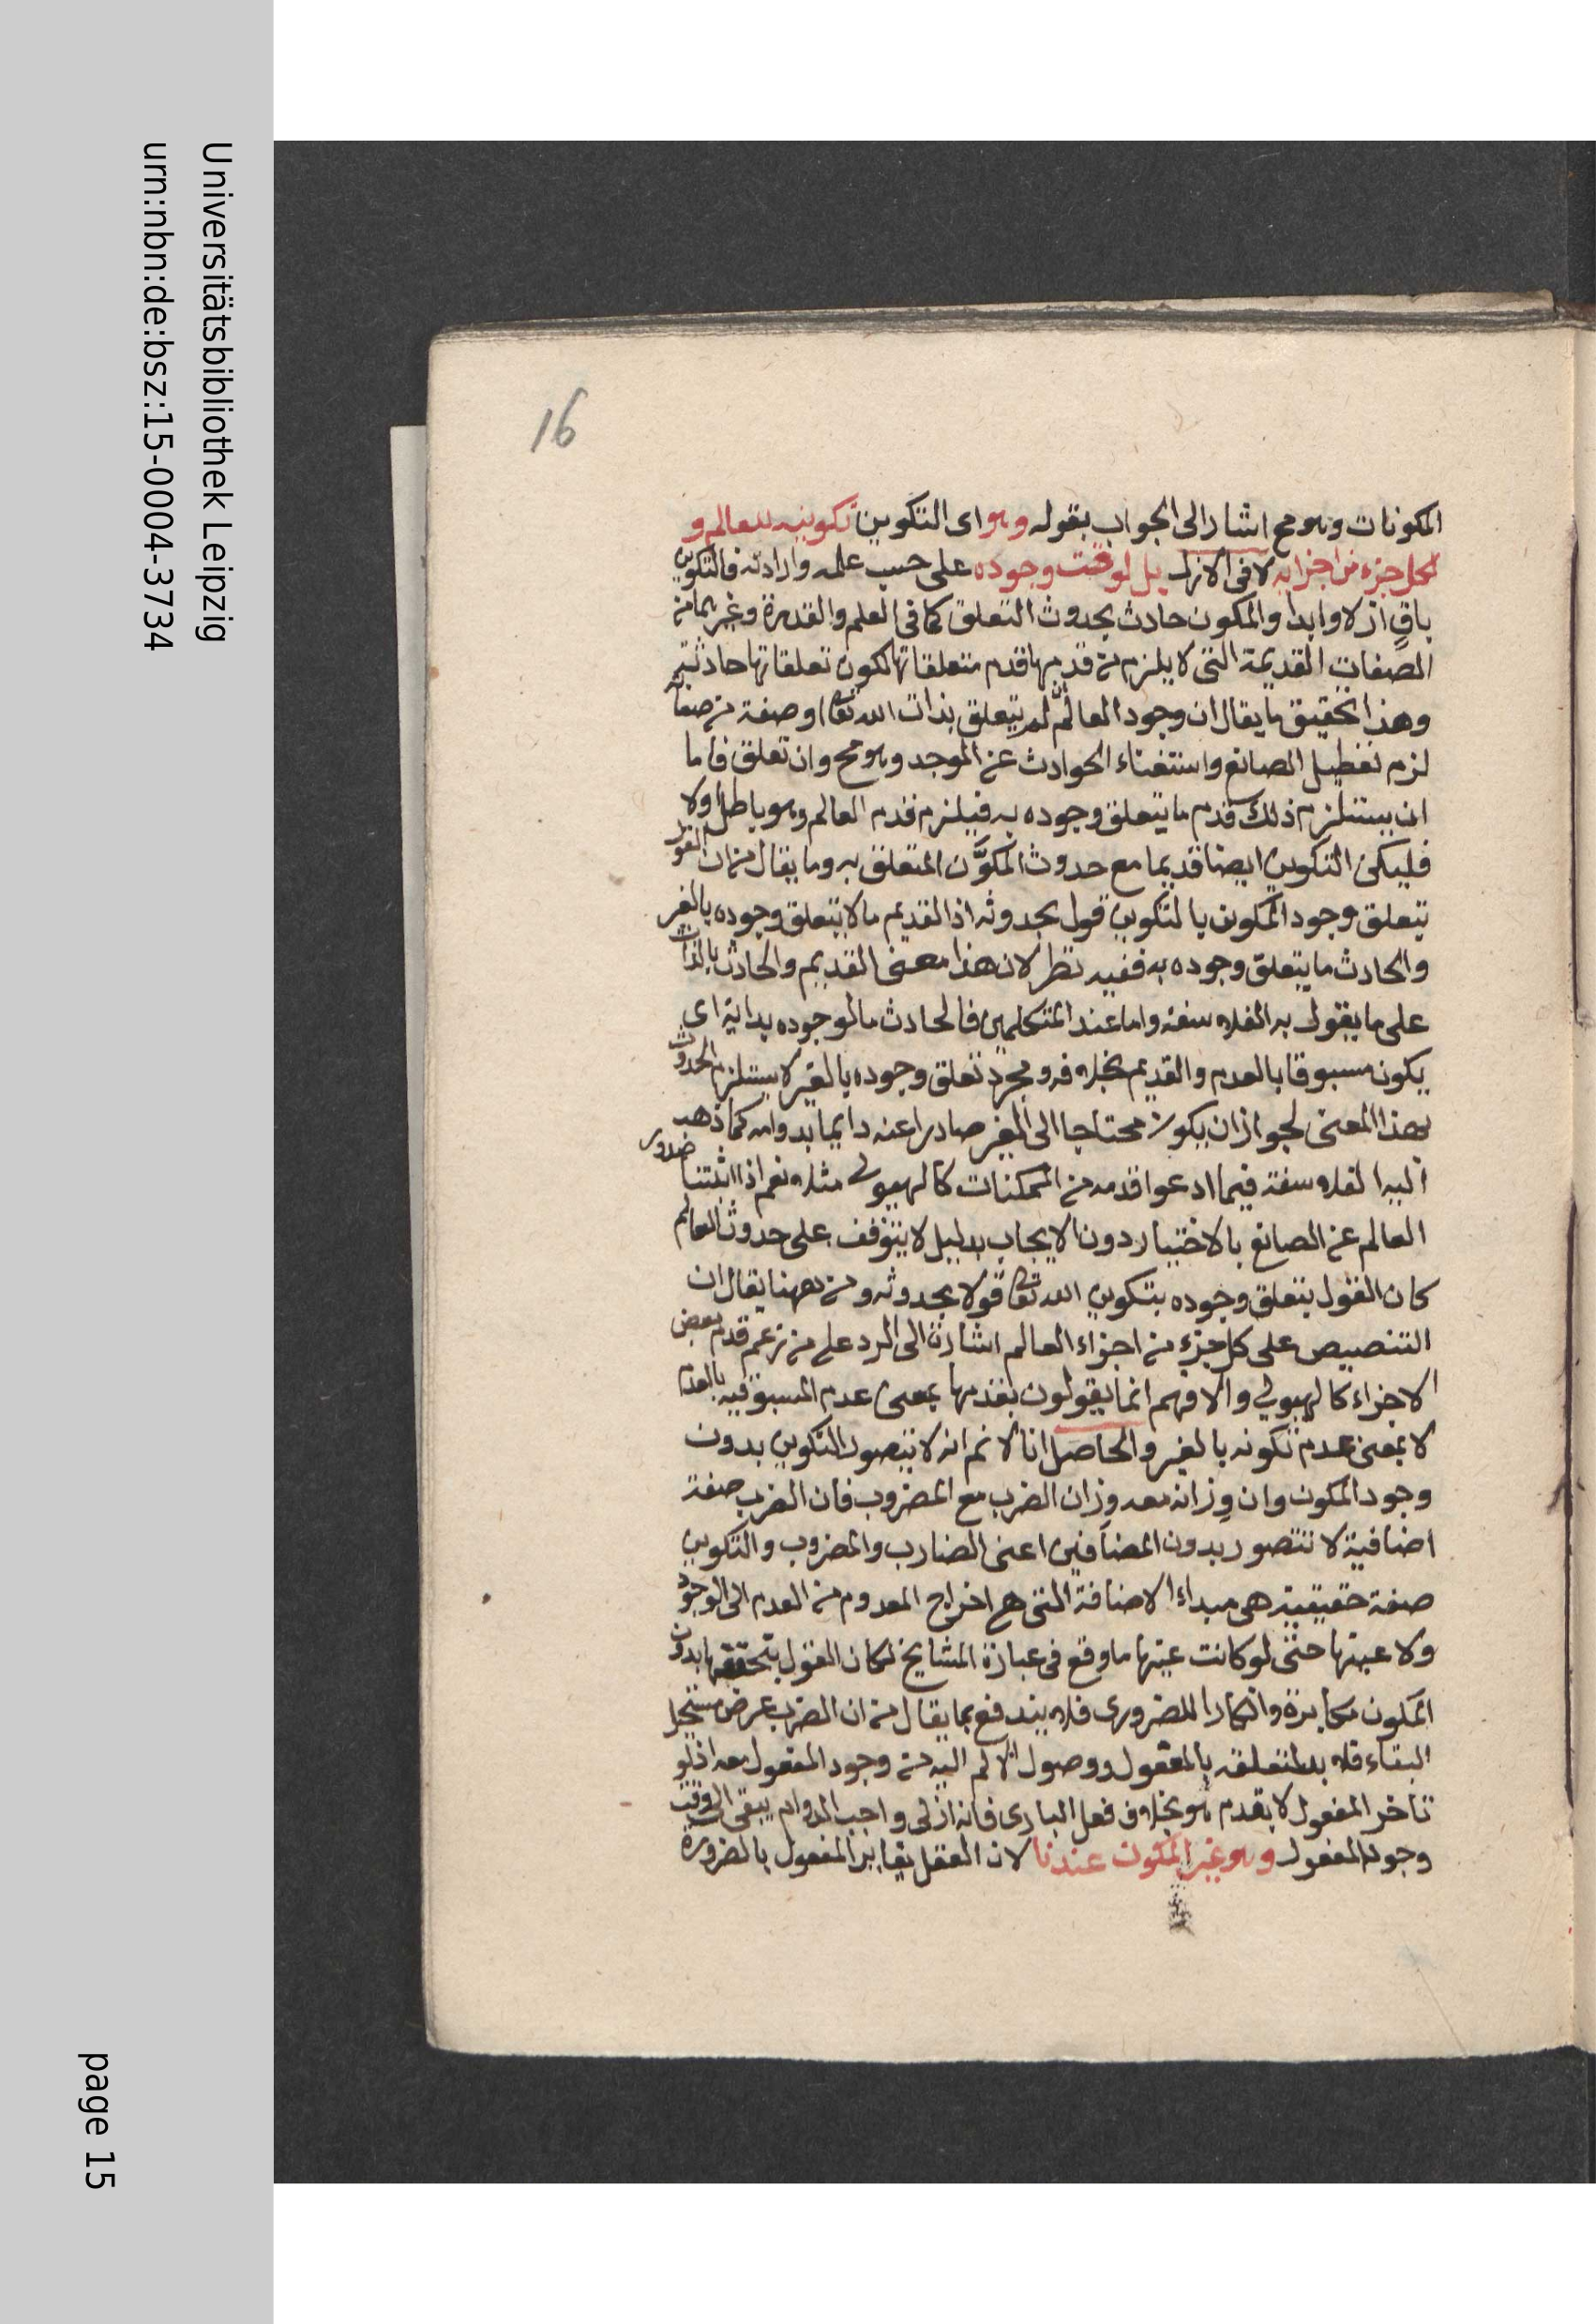 Universitätsbibliothek Leipzig
urn:nbn:de:bsz:15-0004-3734
page 15
16
المكونات وهو مح اشار الى الجواب بقوله وهو اى التكوين تكوينه للعالم و
لكل جزء من اجزائه لا فى الازل بل لوقت وجوده على حسب علمه وارادته فالتكوين
باقٍ ازلا وابدا والمكون حادث بحدوث التعلق كما فى العلم والقدرة وغيرهما من
الصفات القديمة التى لا يلزم من قدمها قدم متعلقاتها لكون تعلقاتها حادثة
وهذا تحقيق ما يقال ان وجود العالم ان لم يتعلق بذات الله تعا او صفة من صفاته
لزم تعطيل الصانع واستغناء الحوادث عن الموجد وهو مح وان تعلق فاما
ان يستلزم ذلك قدم ما يتعلق وجوده به فيلزم قدم العالم وهو باطل اولا
فليكن التكوين ايضا قديما مع حدوث المكوَّن المتعلق به وما يقال من ان القول
بتعلق وجود المكون بالتكوين قول بحدوثه اذ القديم ما لا يتعلق وجوده بالغير
والحادث ما يتعلق وجوده به ففيه نظر لان هذا معنى القديم والحادث بالذات
على ما يقول به الفلاسفة واما عند المتكلمين فالحادث ما لوجوده بداية اى
يكون مسبوقا بالعدم والقديم بخلافه ومجرد تعلق وجوده بالغير لا يستلزم الحدوث
بهذا المعنى لجواز ان يكون محتاجا الى الغير صادرا عنه دايما بدوامه كما ذهب
اليه الفلاسفة فيما ادعوا قدمه من الممكنات كالهيولى مثلا نعم اذا اثبتنا صدور
العالم عن الصانع بالاختيار دون الايجاب بدليل لا يتوقف على حدوث العالم
كان القول بتعلق وجوده بتكوين الله تعا قولا بحدوثه ومن ههنا يقال ان
التنصيص على كل جزء من اجزاء العالم اشارة الى الرد على من زعم قدم بعض
الاجزاء كالهيولى والا فهم انما يقولون بقدمها بمعنى عدم المسبوقية بالعدم
لا بمعنى عدم تكونه بالغير والحاصل انا لا نم انه لا يتصور التكوين بدون
وجود المكون وان وزانه معه وزان الضرب مع المضروب فان الضرب صفة
اضافية لا تتصور بدون المضافين اعنى الضارب والمضروب والتكوين
صفة حقيقية هى مبداء الاضافة التى هى اخراج المعدوم من العدم الى الوجود
ولا عينها حتى لو كانت عينها ما وقع فى عبارة المشايخ لكان القول بتحققها بدون
المكون مكابرة وانكارا للضرورى فلا يندفع بما يقال من ان الضرب عرض مستحيل
البقاء فلا بد لتعلقه بالمفعول ووصول الالم اليه من وجود المفعول معه اذ لو
تاخر المفعول لا يقدم هو بخلاف فعل البارى فانه ازلى واجب الدوام يبقى الى وقت
وجود المفعول وهو غير المكون عندنا لان الفعل يغاير المفعول بالضرورة